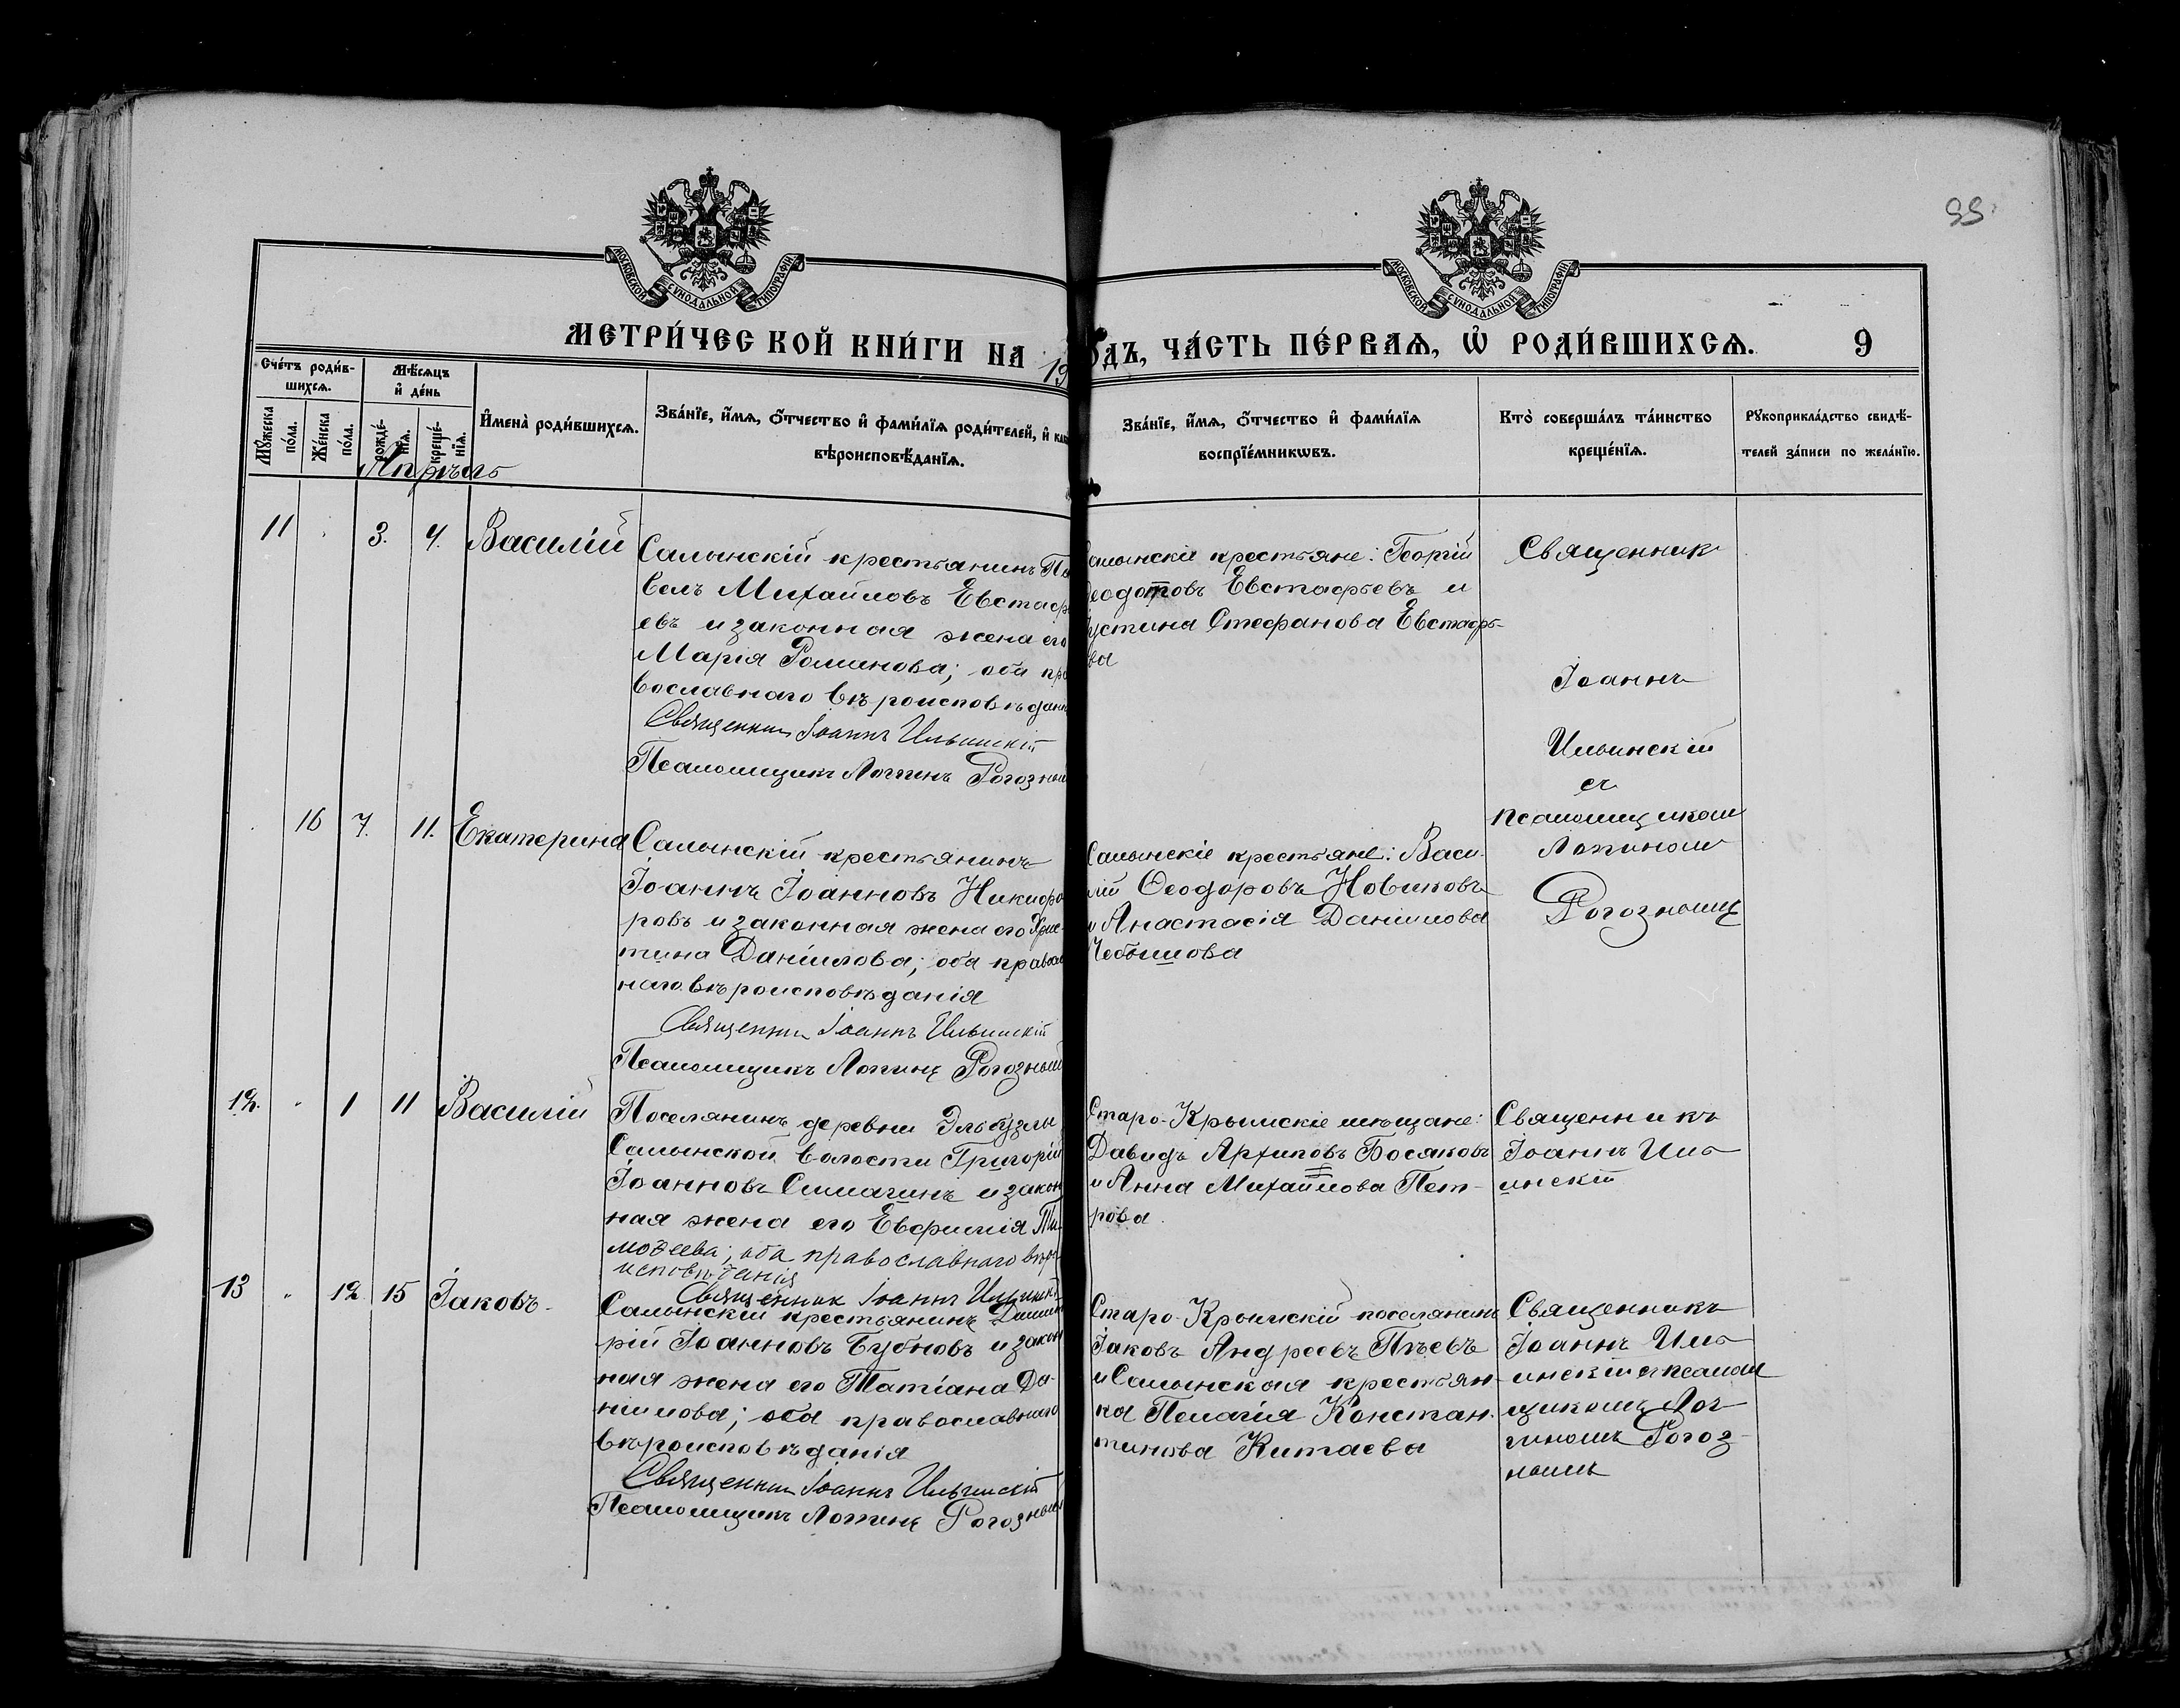 99.
МОСКОВСКОЙ СѴНОДАЛЬНОЙ ТИПОГРАФІИ
МОСКОВСКОЙ СѴНОДАЛЬНОЙ ТИПОГРАФІИ
МЕТРИ́ЧЕС КОЙ КНИ́ГИ НА 19
ОДЪ, ЧА́СТЬ ПЕ́РВАѦ, Ѡ РОДИ́ВШИХСѦ. 9
Сче́тъ роди́в-
шихсѧ.
Мꙋ́жеска по́ла.
Же́нска по́ла.
Мѣ́сѧцъ
и҆ де́нь
рожде́-нїѧ.
креще́-нїѧ.
И҆мена̀ роди́вшихсѧ.
Зва́нїе, и҆́мѧ, ѻ҆́тчество и҆ фами́лїѧ роди́телей, и҆ как
вѣроисповѣ́данїѧ.
Зва́нїе, и҆́мѧ, ѻ҆́тчество и҆ фами́лїѧ
воспрїе́мникѡвъ.
Кто̀ соверша́лъ та́инство
креще́нїѧ.
Рꙋкоприкла́дство свидѣ́-
телей за́писи по жела́нїю.
Апрѣль
11 3. 4. Василій
Салынскій крестьянинъ Па
велъ Михайловъ Евстафь
евъ и законная жена его
Марія Романова; оба пра
вославнаго вѣроисповѣдані
Священникъ Іоаннъ Ильинскій
Псаломщикъ Логгинъ Рогозный
алынскіе крестьяне: Георгій
еодотовъ Евстафьевъ и
устина Стефанова Евстафь-
ва
Священникъ
Іоаннъ
Ильинскій
съ
псаломщикомъ
Логгиномъ
Рогознымъ
16 7. 11. Екатерина
Салынскій крестьянинъ
Іоаннъ Іоанновъ Никифо
ровъ и законная жена его Хрис-
тина Даніилова; оба правосла
наго вѣроисповѣданія
Священникъ Іоаннъ Ильинскій
Псаломщикъ Логгинъ Рогозный
Салынскіе крестьяне: Васи-
лій Ѳеодоровъ Новиковъ
и Анастасія Даніилова
Чебышова
12. " 1 11 Василій
Поселянинъ деревни Эльбузлы
Салынской волости Григорій
Іоанновъ Симагинъ и закон
ная жена его Евфимія Ти-
моѳеева; оба православнаго вѣро
исповѣданія
Священникъ Іоаннъ Ильинскій
Старо-Крымскіе мѣщане:
Давидъ Архиповъ Босяковъ
и Анна Михайлова Пет-
рова.
Священникъ
Іоаннъ Иль-
инскій
13 " 12 15 Іаковъ.
Салынскій крестьянинъ Димит
рій Іоанновъ Бубновъ и закон
ная жена его Татіана Да-
ніилова; оба православнаго
вѣроисповѣданія
Священникъ Іоаннъ Ильинскій
Псаломщикъ Логгинъ Рогозный
Старо-Крымскій поселянинъ
Іаковъ Андреевъ Пѣевъ
и Салынская крестьян-
ка Пелагія Констан-
тинова Китаева
Священникъ
Іоаннъ Иль-
инскій съ псалом
щикомъ Лог
гиномъ Рогоз-
нымъ